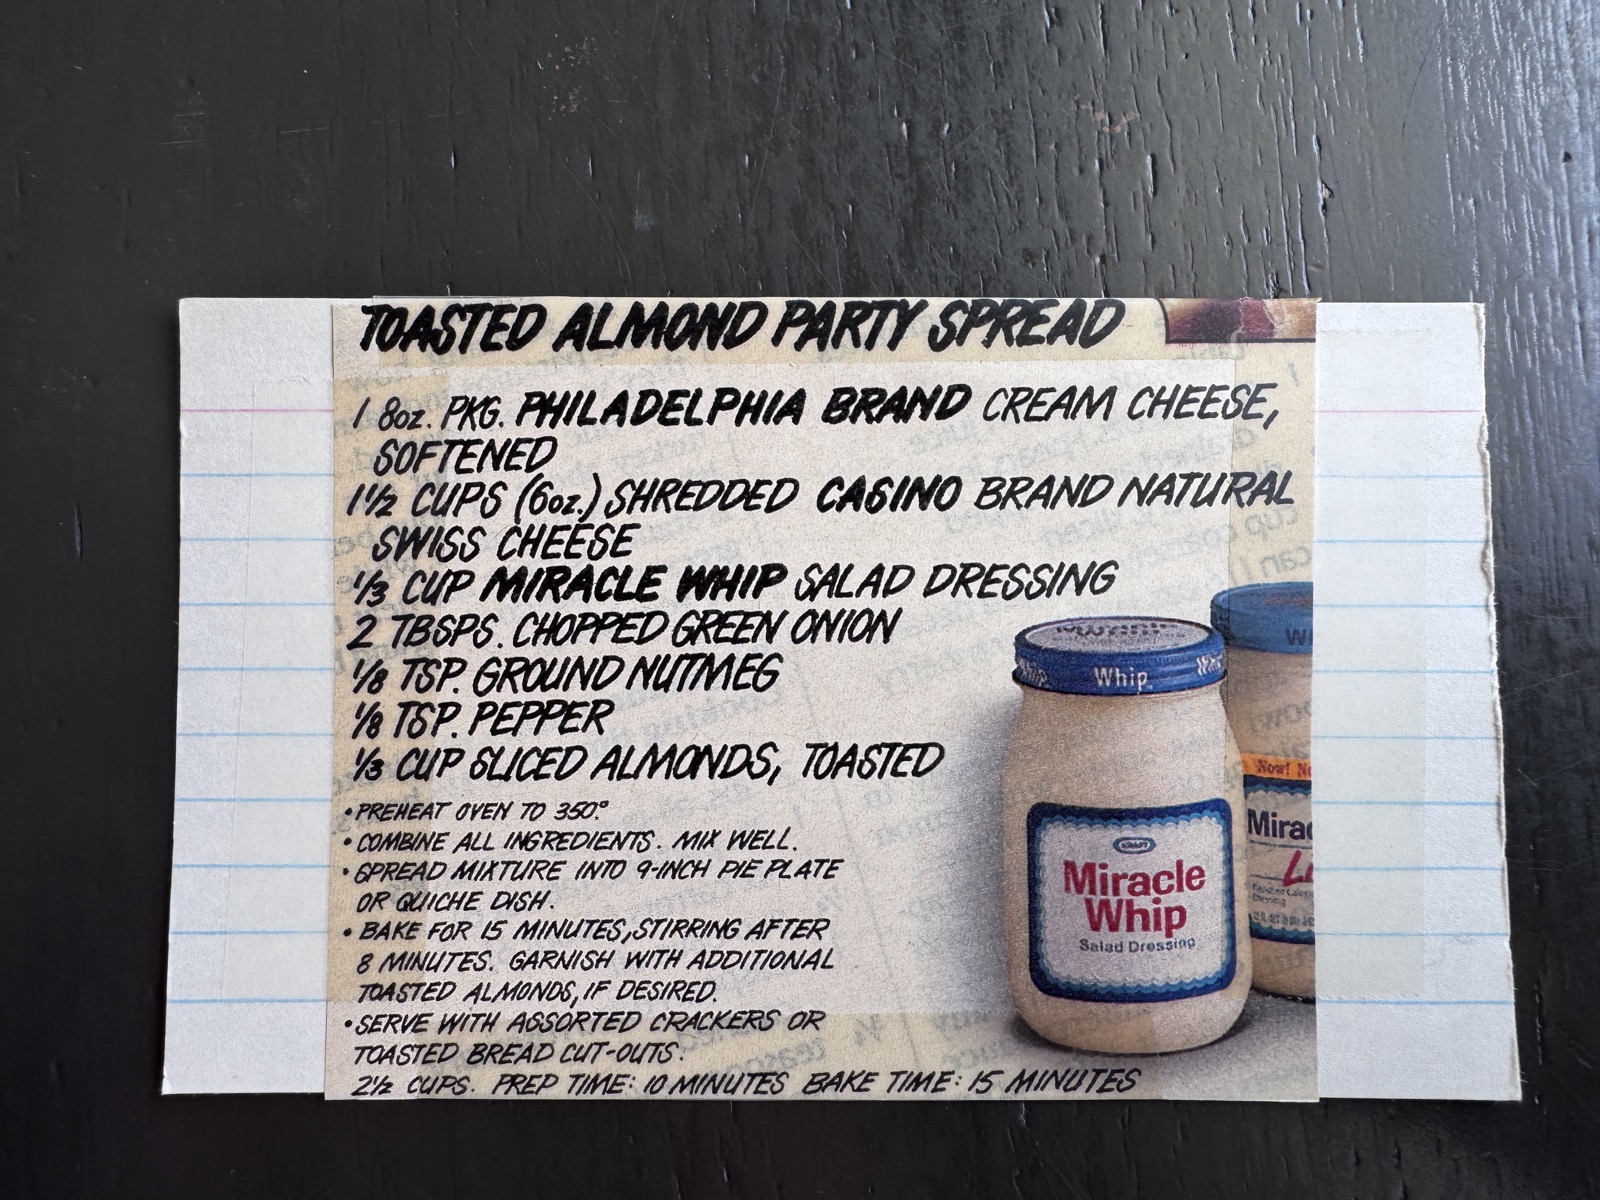 TOASTED ALMOND PARTY SPREAD
1 8oz. PKG. PHILADELPHIA BRAND CREAM CHEESE,
SOFTENED
1 1/2 CUPS (6oz.) SHREDDED CASINO BRAND NATURAL
SWISS CHEESE
1/3 CUP MIRACLE WHIP SALAD DRESSING
2 TBSPS. CHOPPED GREEN ONION
1/8 TSP. GROUND NUTMEG
1/8 TSP. PEPPER
1/3 CUP SLICED ALMONDS, TOASTED
• PREHEAT OVEN TO 350°.
• COMBINE ALL INGREDIENTS. MIX WELL.
• SPREAD MIXTURE INTO 9-INCH PIE PLATE
OR QUICHE DISH.
• BAKE FOR 15 MINUTES, STIRRING AFTER
8 MINUTES. GARNISH WITH ADDITIONAL
TOASTED ALMONDS, IF DESIRED.
• SERVE WITH ASSORTED CRACKERS OR
TOASTED BREAD CUT-OUTS.
2 1/2 CUPS. PREP TIME: 10 MINUTES BAKE TIME: 15 MINUTES
Whip
KRAFT
Miracle
Whip
Salad Dressing
Now!
Mirac